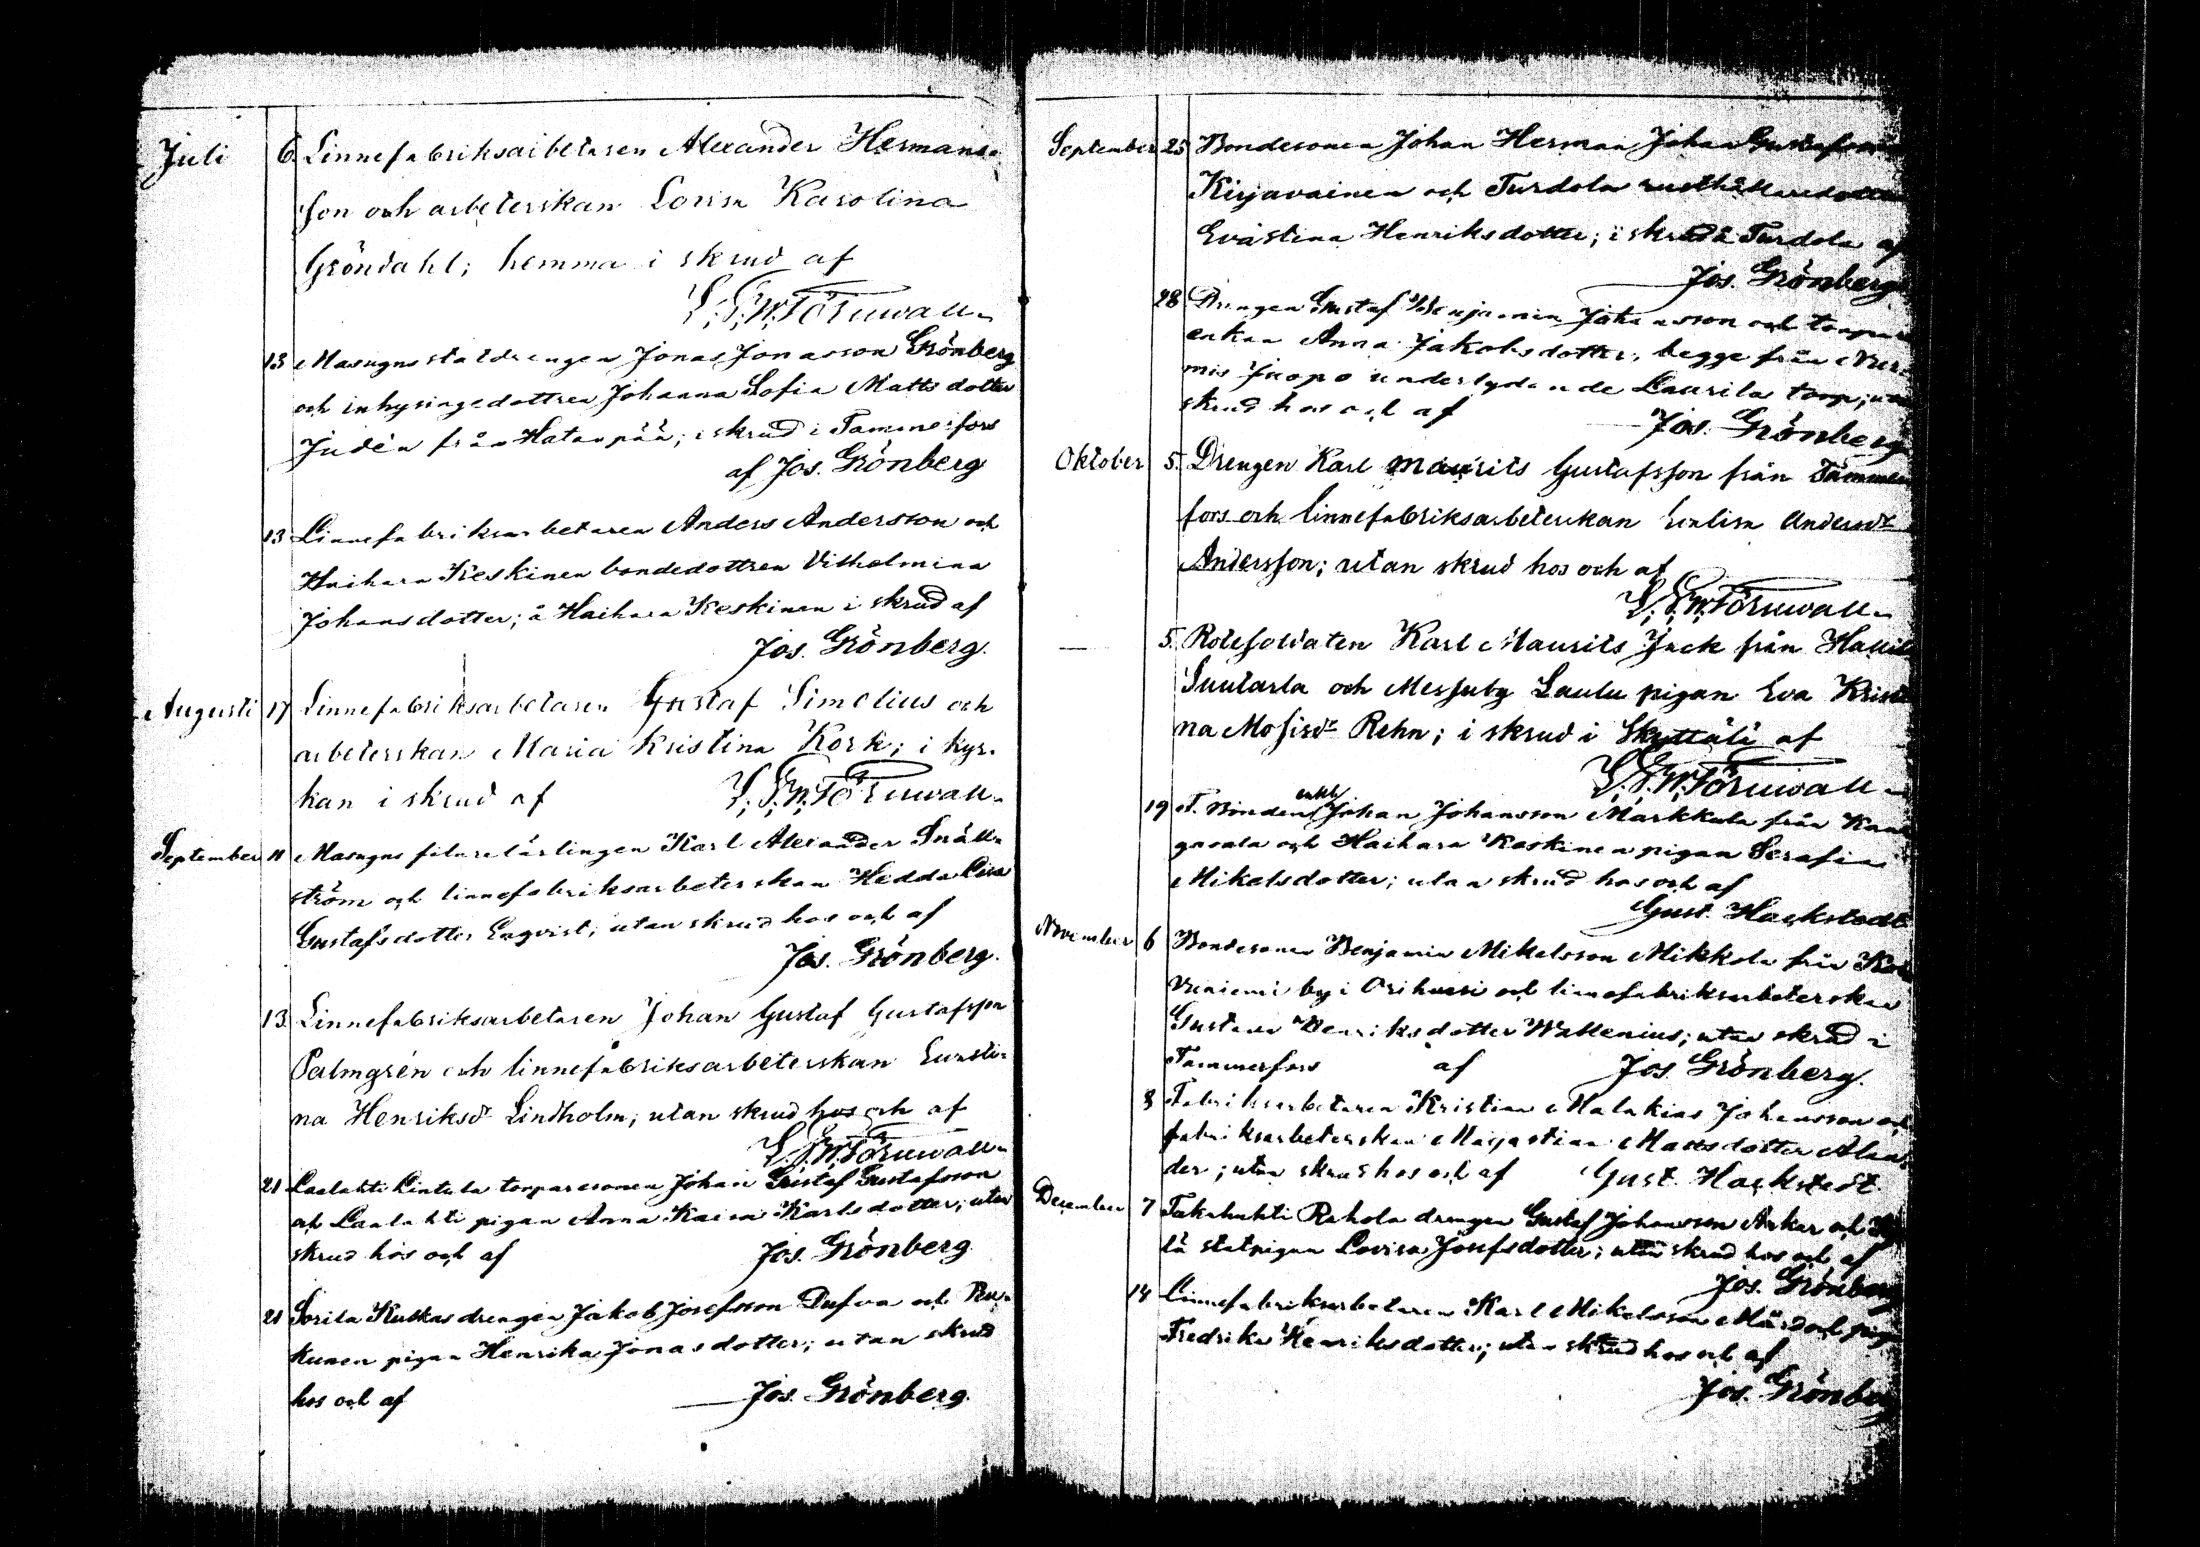 Juli 6. Linnefabriksarbetaren Alexander Hermans-
son och arbeterskan Lovisa Karolina
Gröndahl; hemma i skrud af
13 Masugns statdrengen Jonas Jonasson Grönberg
och inhysingedottren Johanna Sofia Mattsdotter
Judén från Hatanpää; i skrud i Tammerfors
af Jos. Grönberg
13 Linnefabriksarbetaren Anders Andersson och
Haihara Keskinen bondedottren Vilhelmina
Johansdotter; å Haihara Keskinen i skrud af
Jos. Grönberg.
Augusti 17 Linnefabriksarbetaren Gustaf Simelius och
arbeterskan Maria Kristina Kork; i kyr-
kan i skrud af
September 11 Masugns filarelärlingen Karl Alexander Snäll-
ström och linnefabriksarbeterskan Hedda Lisa
Gustafsdotter Enqvist; utan skrud hos och af
Jos. Grönberg.
13 Linnefabriksarbetaren Johan Gustaf Gustafsson
Palmgrén och linnefabriksarbeterskan Evasti-
na Henriksdr Lindholm; utan skrud hos och af
21 Laalahti Lintula torparesonen Johan Gustaf Gustafsson
och Laalahti pigan Anna Kaisa Karlsdotter; utan
skrud hos och af Jos. Grönberg
21 Sorila Kutkas drengen Jakob Josefsson Dufva och
kunen pigan Henrika Jonasdotter; utan skrud
hos och af Jos. Grönberg.
September 25 Bondesonen Johan Herman Johan Gustafsson
Kirjavainen och Turdola rusthållaredotter
Evastina Henriksdotter; i skrud å Turdola af
Jos. Grönberg
28 Drengen Gustaf Benjamin Johansson och
enkan Anna Jakobsdotter, begge från Nur-
mis Juopo underlydande Laurila torp; utan
skrud hos och af Jos. Grönberg
Oktober 5. Drengen Karl Maurits Gustafsson från Tammer
fors och linnefabriksarbeterskan Evalisa Andersdr
Andersson; utan skrud hos och af
— 5. Rotesoldaten Karl Maurits Jack från
Suutarla och Messuby Laulu pigan Eva Kristi
na Mosisdr Rehn; i skrud i Skyttälä af
19 F. Bonden enkl. Johan Johansson Markkula från Kan
gasala och Haihara Keskinen pigan Serafia
Mikelsdotter; utan skrud hos och af
Gust. Hackstedt
November 6 Bondesonen Benjamin Mikelsson Mikkola från
by i Orihvesi och linnefabriksarbeterskan
Gustava Henriksdotter Wallenius; utan skrud i
Tammerfors af Jos. Grönberg.
8 Fabriksarbetaren Kristian Malakias Johansson och
fabriksarbeterskan Majastina Mattsdotter Alan
der; utan skrud hos och af Gust. Hackstedt.
December 7 Takahuhti Rahola drengen Gustaf Johansson Ankar och
lä statpigan Lovisa Josefsdotter; utan skrud hos och af
Jos. Grönberg
14 Linnefabriksarbetaren Karl Mikelsson Mård och pigan
Fredrika Henriksdotter; utan skrud hos och af
Jos. Grönberg